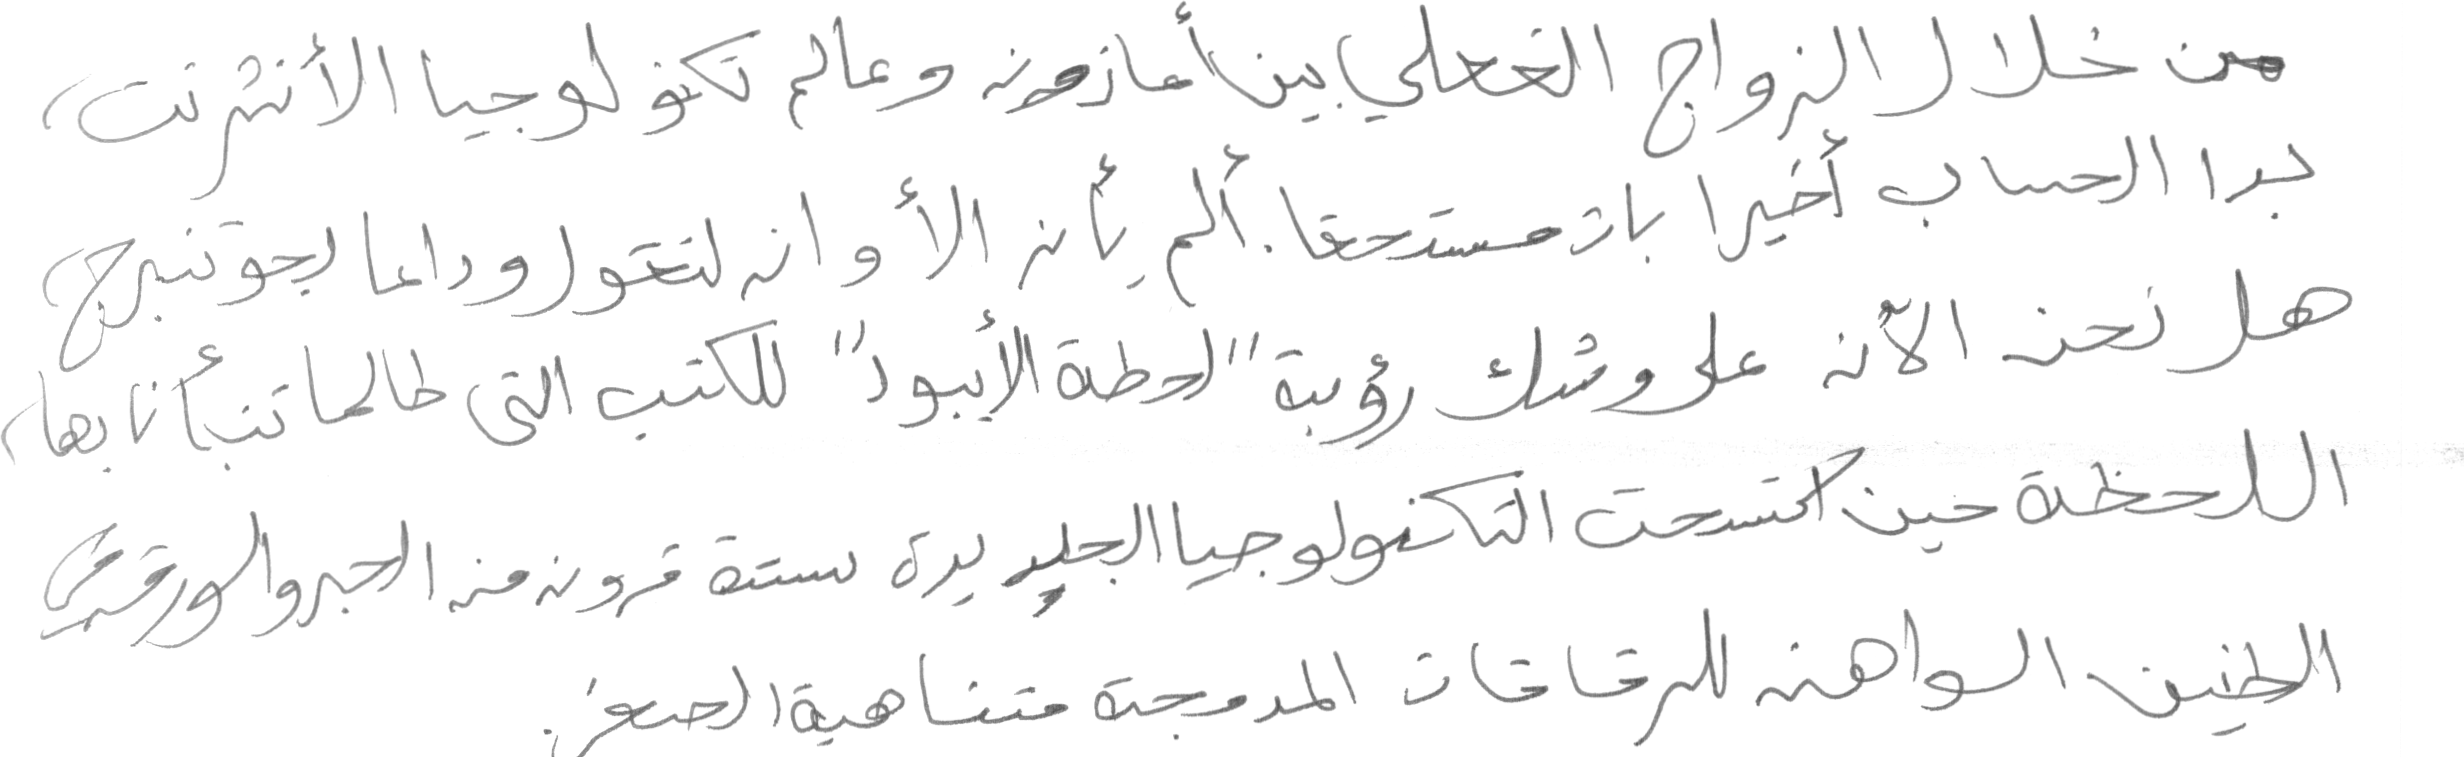 من خلال الزواج الفعلي بين أمازون وعالم تكنولوجيا الأنترنت،
بدا الحساب أخيرا بات مستحقا. ألم يأن الأوان لنقول وداعا لجوتنبرج،
هل نحن الآن على وشك رؤية "لحظة الأيبود" للكتب التى طالما تنبأنا بها،
اللحظة حين اكتسحت التكنولوجيا الجديدة ستة قرون من الحبر والورق
الطنين الواهن للرقاقات المدمجة متناهية الصغر.